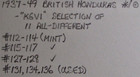 1937-49 BRITISH HONDURAS #/©
-"KGVI" SELECTION OF
11 ALL-DIFFERENT
#112-114 (MINT)
#115-117 ✓
#127-128 ✓
#131,134,136 (USED)